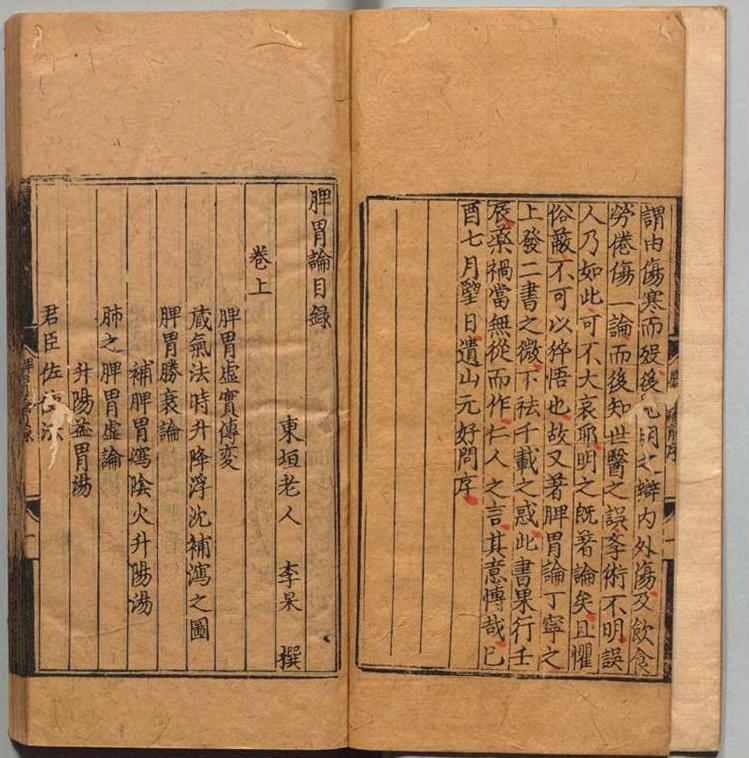 謂由傷寒而歿後辯內外傷及飲食
勞倦傷一論而後知世醫之誤學術不明誤
人乃如此可不大哀耶明之既著論矣且懼
俗蔽不可以猝悟也故又著脾胃論丁寧之
上發二書之微下祛千載之惑此書果行壬
辰藥禍當無從而作仁人之言其意博哉已
酉七月望日遺山元好問序
脾胃論目錄
東垣老人 李杲 撰
卷上
脾胃虛實傳変
蔵氣法時升降浮沈補瀉之圖
脾胃勝衰論
補脾胃瀉陰火升陽湯
肺之脾胃虛論
升陽益胃湯
君臣佐